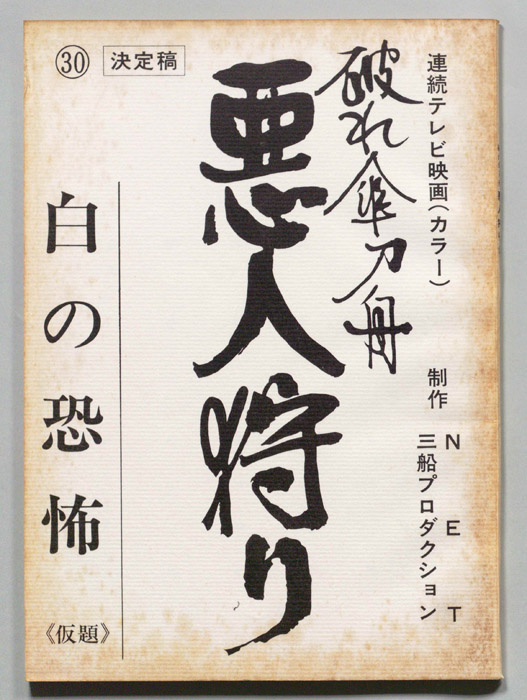 連続テレビ映画(カラー)
制作
NET
三船プロダクション
破れ傘刀舟
悪人狩り
㉚
決定稿
白の恐怖
《仮題》